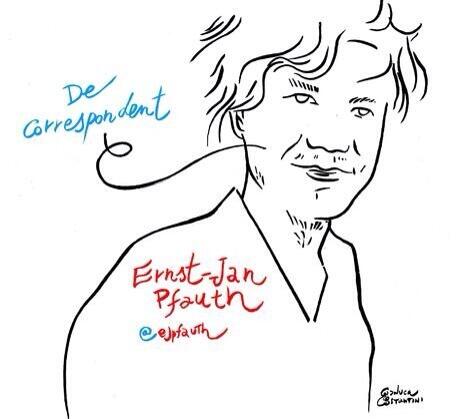 De
Correspondent
Ernst-Jan
Pfauth
@ejpfauth
Gianluca
Costantini